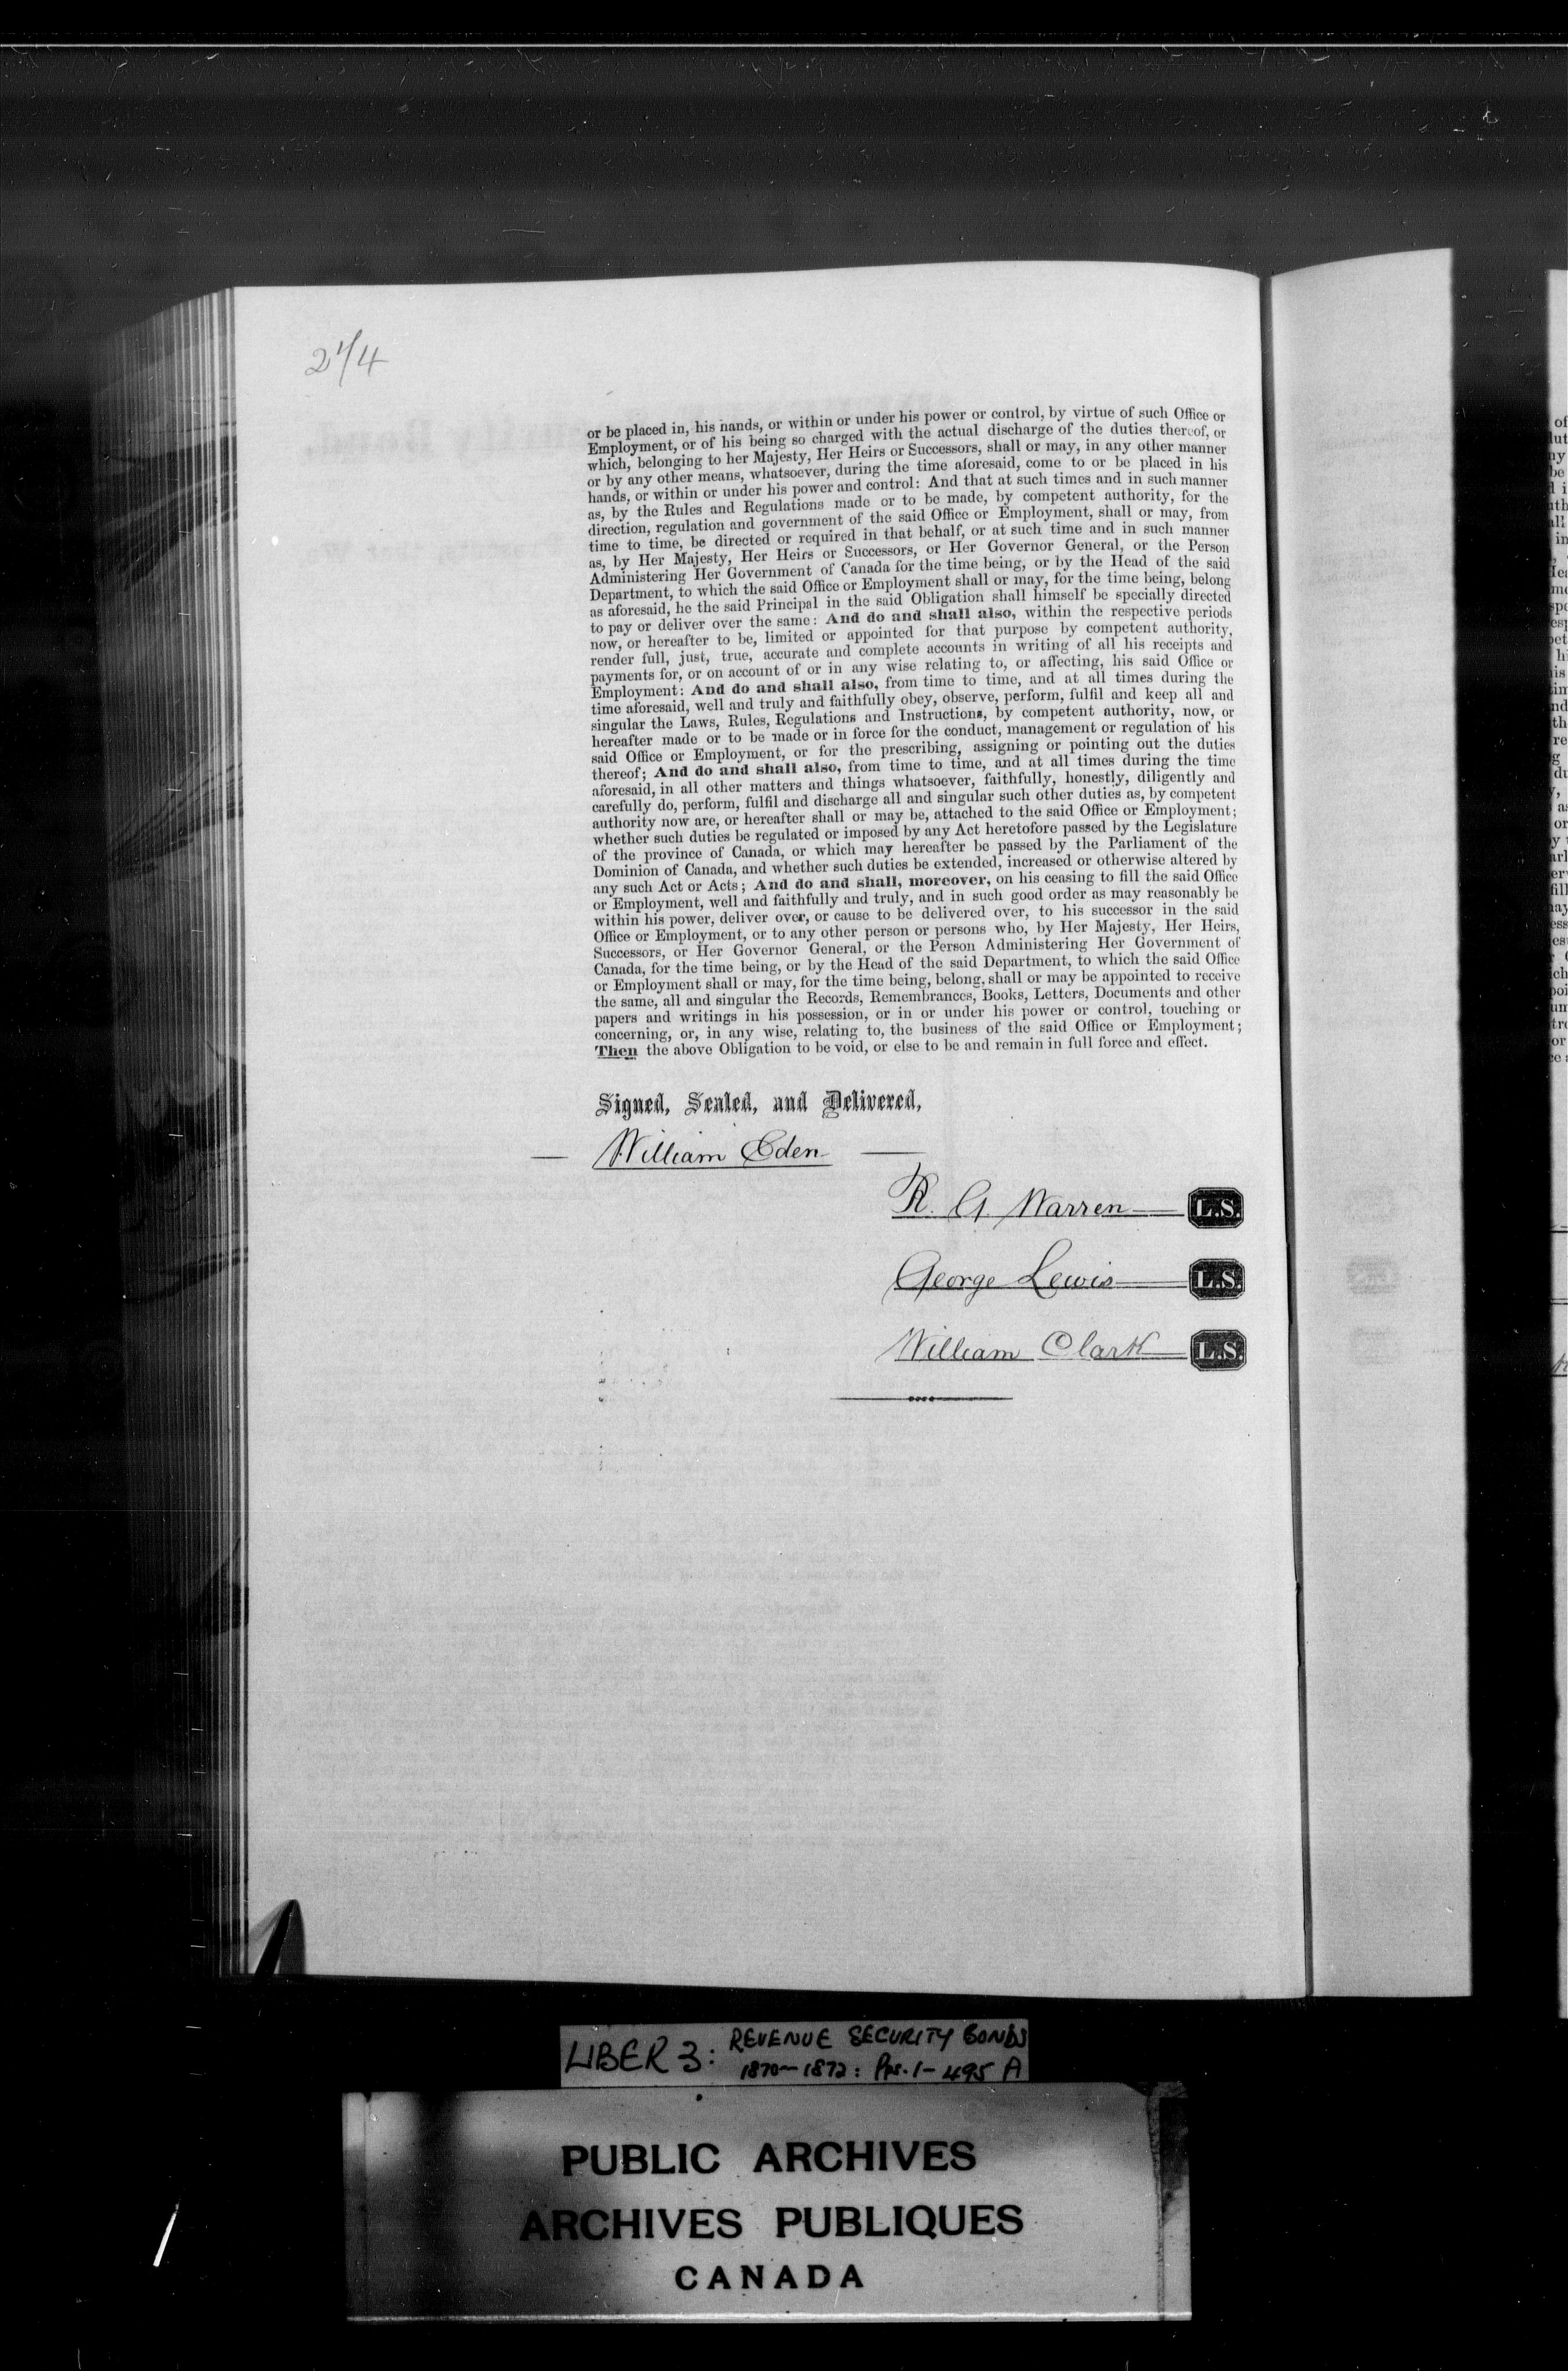 274
or be placed in, his hands, or within or under his power or control, by virtue of such Office or
Employment, or of his being so charged with the actual discharge of the duties thereof, or
which, belonging to her Majesty, Her Heirs or Successors, shall or may, in any other manner
or by any other means, whatsoever, during the time aforesaid, come to or be placed in his
hands, or within or under his power and control: And that at such times and in such manner
as, by the Rules and Regulations made or to be made, by competent authority, for the
direction, regulation and government of the said Office or Employment, shall or may, from
time to time, be directed or required in that behalf, or at such time and in such manner
as, by Her Majesty, Her Heirs or Successors, or Her Governor General, or the Person
Administering Her Government of Canada for the time being, or by the Head of the said
Department, to which the said Office or Employment shall or may, for the time being, belong
as aforesaid, he the said Principal in the said Obligation shall himself be specially directed
to pay or deliver over the same: And do and shall also, within the respective periods
now, or hereafter to be, limited or appointed for that purpose by competent authority,
render full, just, true, accurate and complete accounts in writing of all his receipts and
payments for, or on account of or in any wise relating to, or affecting, his said Office or
Employment: And do and shall also, from time to time, and at all times during the
time aforesaid, well and truly and faithfully obey, observe, perform, fulfil and keep all and
singular the Laws, Rules, Regulations and Instructions, by competent authority, now, or
hereafter made or to be made or in force for the conduct, management or regulation of his
said Office or Employment, or for the prescribing, assigning or pointing out the duties
thereof; And do and shall also, from time to time, and at all times during the time
aforesaid, in all other matters and things whatsoever, faithfully, honestly, diligently and
carefully do, perform, fulfil and discharge all and singular such other duties as, by competent
authority now are, or hereafter shall or may be, attached to the said Office or Employment;
whether such duties be regulated or imposed by any Act heretofore passed by the Legislature
of the province of Canada, or which may hereafter be passed by the Parliament of the
Dominion of Canada, and whether such duties be extended, increased or otherwise altered by
any such Act or Acts; And do and shall, moreover, on his ceasing to fill the said Office
or Employment, well and faithfully and truly, and in such good order as may reasonably be
within his power, deliver over, or cause to be delivered over, to his successor in the said
Office or Employment, or to any other person or persons who, by Her Majesty, Her Heirs,
Successors, or Her Governor General, or the Person Administering Her Government of
Canada, for the time being, or by the Head of the said Department, to which the said Office
or Employment shall or may, for the time being, belong, shall or may be appointed to receive
the same, all and singular the Records, Remembrances, Books, Letters, Documents and other
papers and writings in his possession, or in or under his power or control, touching or
concerning, or, in any wise, relating to, the business of the said Office or Employment;
Then the above Obligation to be void, or else to be and remain in full force and effect.
Signed, Sealed, and Delivered,
— William Eden —
R. G. Warren L.S.
George Lewis L.S.
William Clark L.S.
LIBER 3: REVENUE SECURITY BONDS
1870-1872: Pps. 1-495 A
PUBLIC ARCHIVES
ARCHIVES PUBLIQUES
CANADA